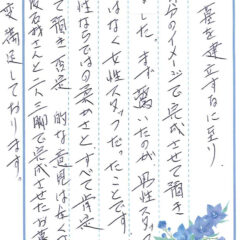 墓を建立するに至り、
分のイメージで完成させて頂き
ました。まず驚いたのが男性スタッ
はなく女性スタッフだったことです。
性ならではの柔かさと、すべて肯定
て頂き否定的な意見はなくて
石材さんと二人三脚で完成させたお墓
変満足しております。